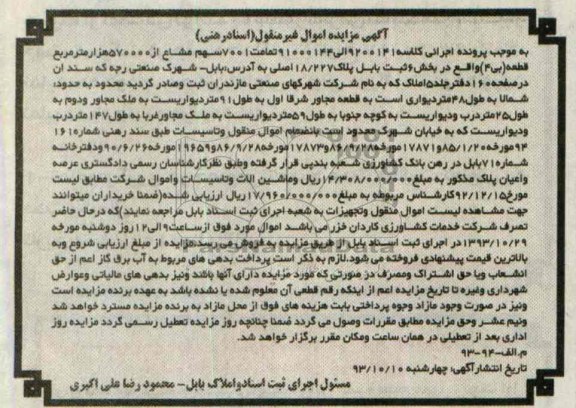 آگهی مزایده اموال غیرمنقول(اسنادرهنی)
به موجب پرونده اجرائی کلاسه۹۲۰۰۱۴۱الی۹۱۰۰۰۱۴۴تمامت۷۰۰۱سهم مشاع از۵۷۰۰۰۰هزارمترمربع
قطعه(بی۴)واقع در بخش۶ثبت بابل پلاک۱۸/۲۲۷اصلی به آدرس:بابل- شهرک صنعتی رجه که سند ان
درصفحه۱۶۰دفترجلد۵املاک که به نام شرکت شهرکهای صنعتی مازندران ثبت وصادر گردید محدود به حدود:
شمالا به طول۴۸متردیواری است به قطعه مجاور شرقا اول به طول۹۱متردیواریست به ملک مجاور ودوم به
طول۲۵متردرب ودیواریست به کوچه جنوبا به طول۵۹متردیواریست به ملک مجاورغربا به طول۱۴۷متردرب
ودیواریست که به خیابان شهرک محدود است بانضمام اموال منقول وتاسیسات طبق سند رهنی شماره۱۶۱
۹۴مورخه۸۵/۱/۲۰و۱۷۸۷۱مورخه۸۶/۹/۲۸و۱۷۸۷۳مورخه۸۶/۹/۲۸و۱۹۶۵۹مورخه۹۰/۶/۲۶ودفترخانه
شماره۷۱بابل در رهن بانک کشاورزی شعبه بندپی قرار گرفته وطبق نظرکارشناسان رسمی دادگستری عرصه
واعیان پلاک مذکور به مبلغ۱۴/۳۰۸/۰۰۰/۰۰۰ریال وماشین الات وتاسیسات واموال شرکت مطابق لیست
مورخ۹۲/۱۲/۱۵کارشناس مربوطه به مبلغ۱۷/۹۶۰/۰۰۰/۰۰۰ریال ارزیابی شده(ضمنا خریداران میتوانند
جهت مشاهده لیست اموال منقول وتجهیزات به شعبه اجرای ثبت اسناد بابل مراجعه نمایند)که درحال حاضر
تصرف شرکت خدمات کشاورزی کاردان خزر می باشد اموال مورد فوق ازساعت۹الی۱۲روز دوشنبه مورخه
۱۳۹۳/۱۰/۲۹در اجرای ثبت اسناد بابل از طریق مزایده به فروش می رسد.مزایده از مبلغ ارزیابی شروع وبه
بالاترین قیمت پیشنهادی فروخته می شود.لازم به ذکر است پرداخت بدهی های مربوط به آب برق گاز اعم از حق
انشعاب ویا حق اشتراک ومصرف در صورتی که مورد مزایده دارای آنها باشد ونیز بدهی های مالیاتی وعوارض
شهرداری وغیره تا تاریخ مزایده اعم از اینکه رقم قطعی آن معلوم شده یا نشده باشد به عهده برنده مزایده است
ونیز در صورت وجود مازاد وجوه پرداختی بابت هزینه های فوق از محل مازاد به برنده مزایده مسترد خواهد شد
ونیم عشر وحق مزایده مطابق مقررات وصول می گردد ضمنا چنانچه روز مزایده تعطیل رسمی گردد مزایده روز
اداری بعد از تعطیلی در همان ساعت ومکان مقرر برگزار خواهد شد.
م.الف-۹۴-۹۳
تاریخ انتشارآگهی: چهارشنبه ۹۳/۱۰/۱۰
مسئول اجرای ثبت اسنادواملاک بابل- محمود رضا علی اکبری